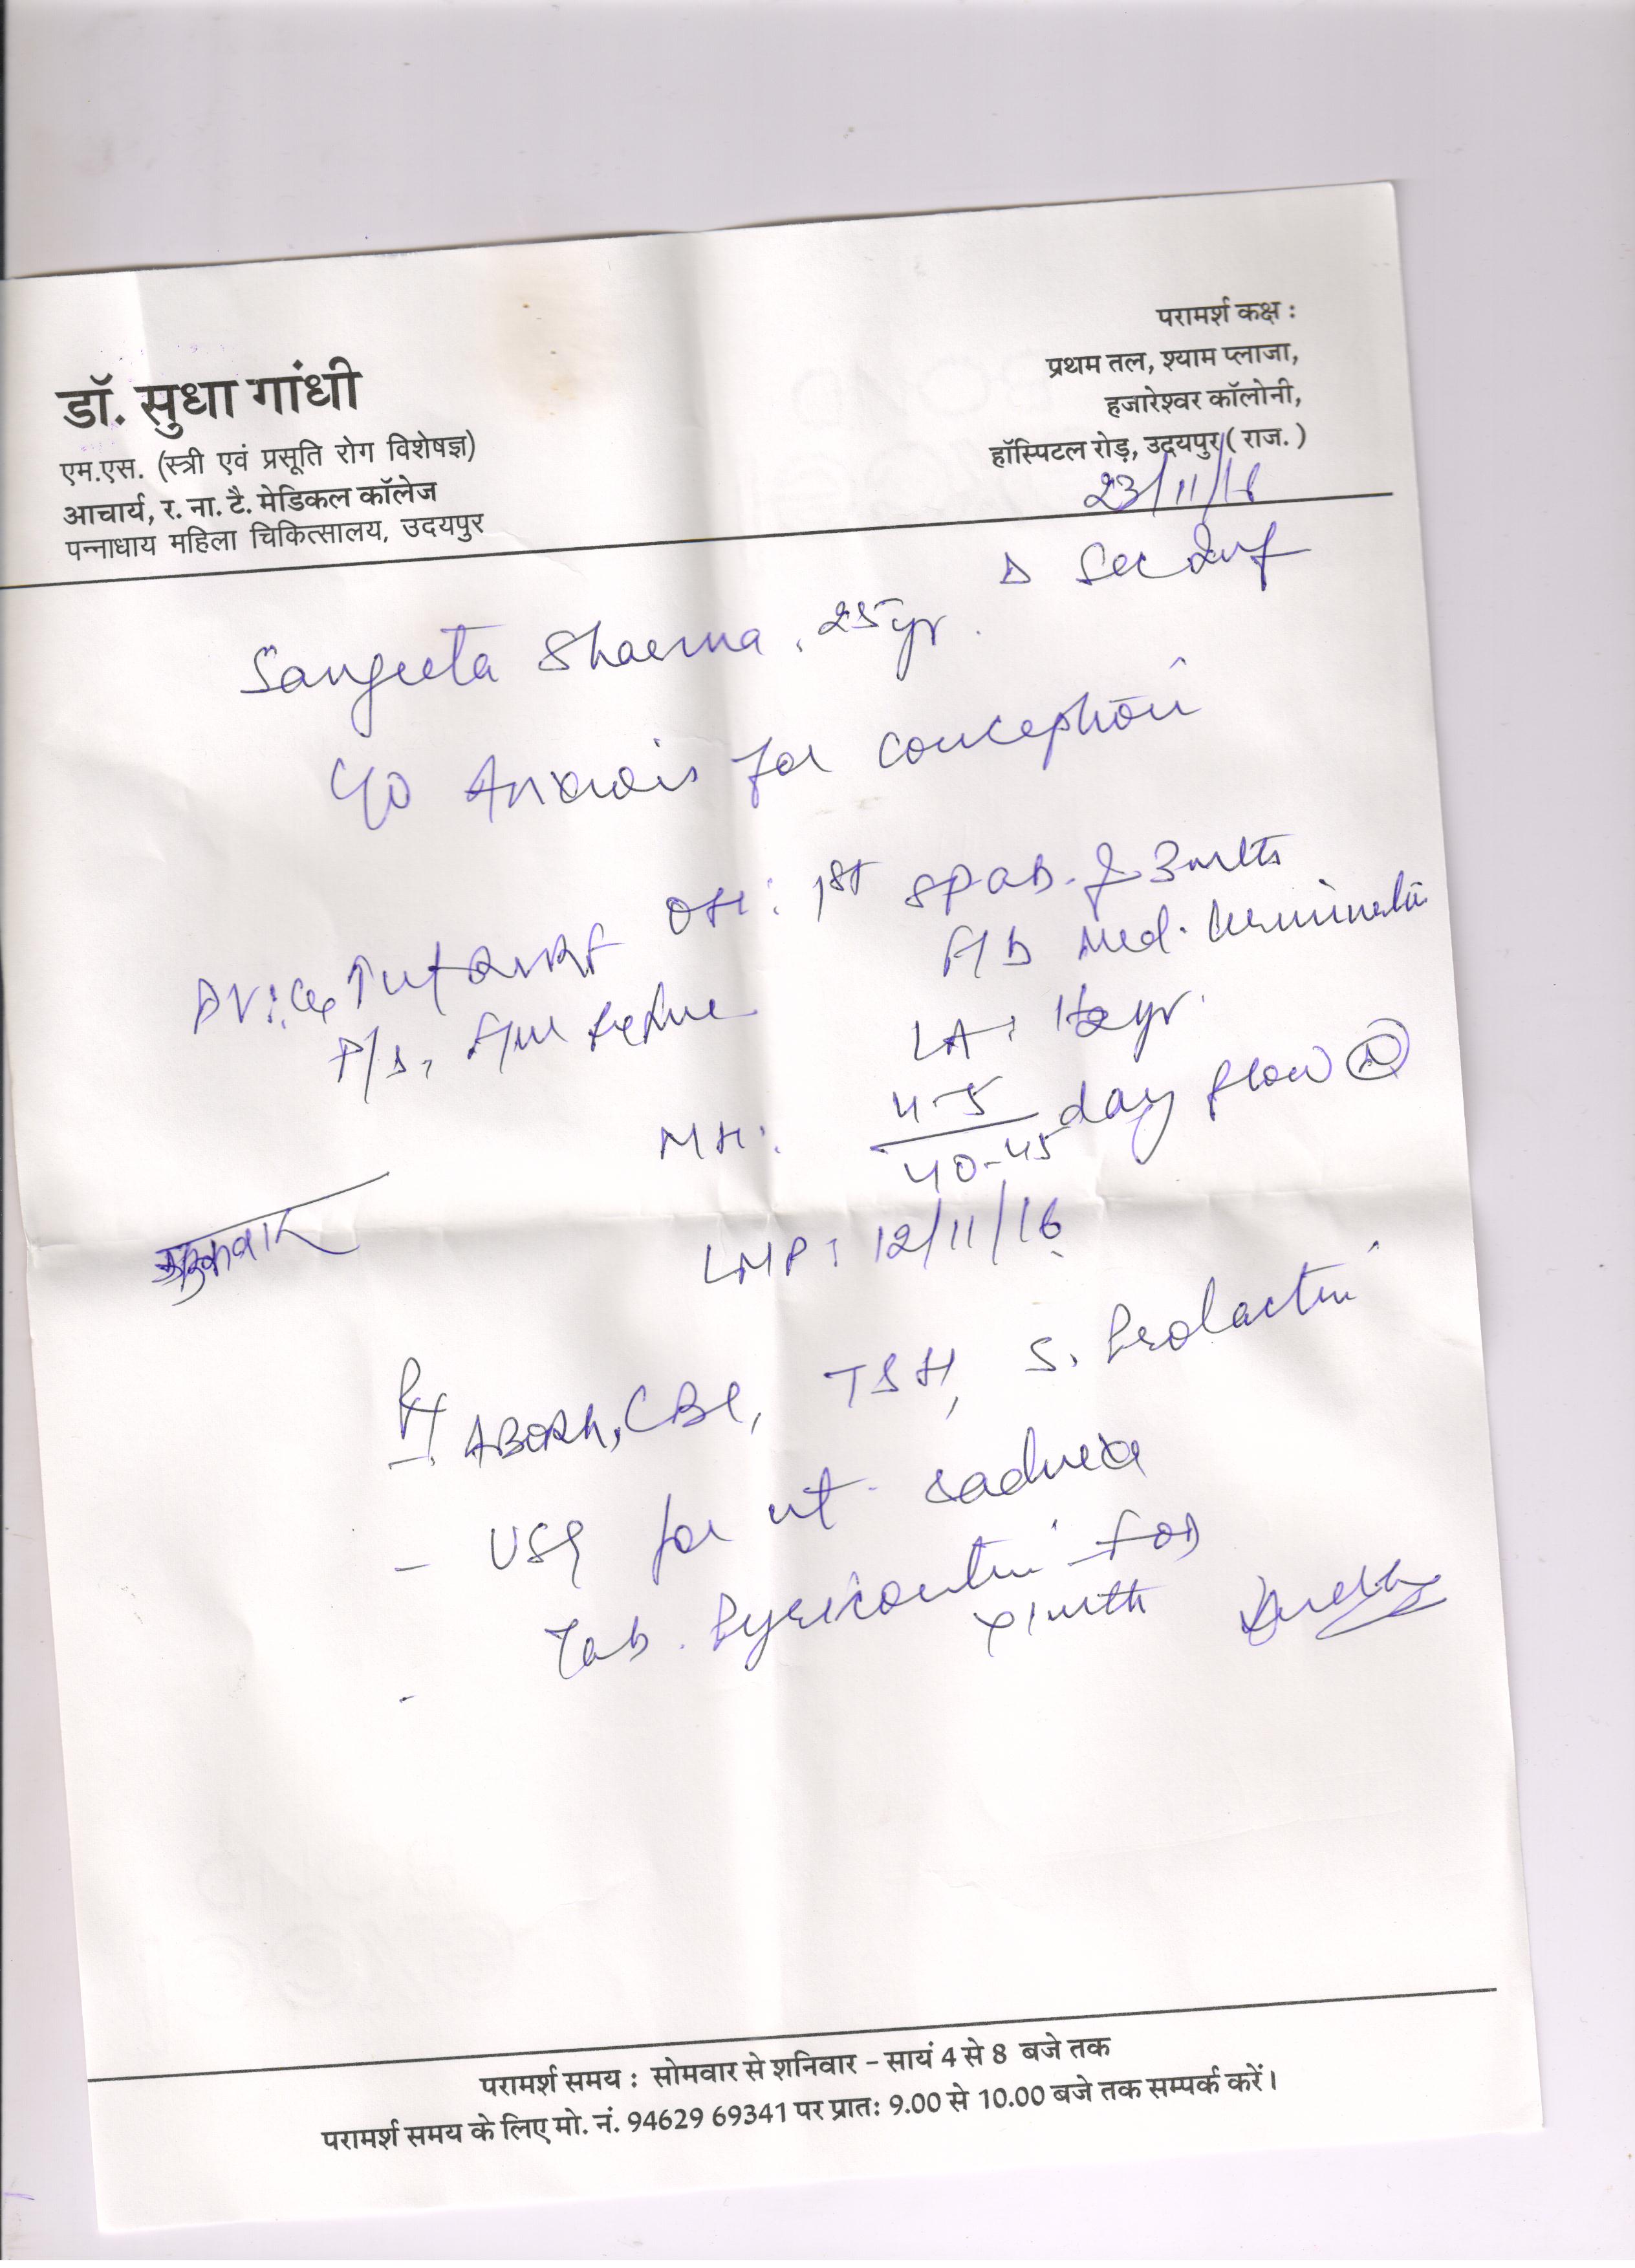 परामर्श कक्ष :
प्रथम तल, श्याम प्लाजा,
हजारेश्वर कॉलोनी,
हॉस्पिटल रोड़, उदयपुर ( राज. )
डॉ. सुधा गांधी
एम.एस. (स्त्री एवं प्रसूति रोग विशेषज्ञ)
आचार्य, र. ना. टै. मेडिकल कॉलेज
पन्नाधाय महिला चिकित्सालय, उदयपुर
23/11/16
Δ Sec Inf
Sangeeta Sharma, 25yr.
C/O Anxious for conception
OH: 1st sp ab. 3 mths
Med. termination
LA: 1½ yr.
MH: 4-5/40-45 day flow
शुक्रवार
LMP: 12/11/16
ABORh, CBC, TSH, S. Prolactin
- USG for ut. adnexa
- Tab. Pyricontin-F OD
x 1 mth
परामर्श समय : सोमवार से शनिवार - सायं 4 से 8 बजे तक
परामर्श समय के लिए मो. नं. 94629 69341 पर प्रातः 9.00 से 10.00 बजे तक सम्पर्क करें।